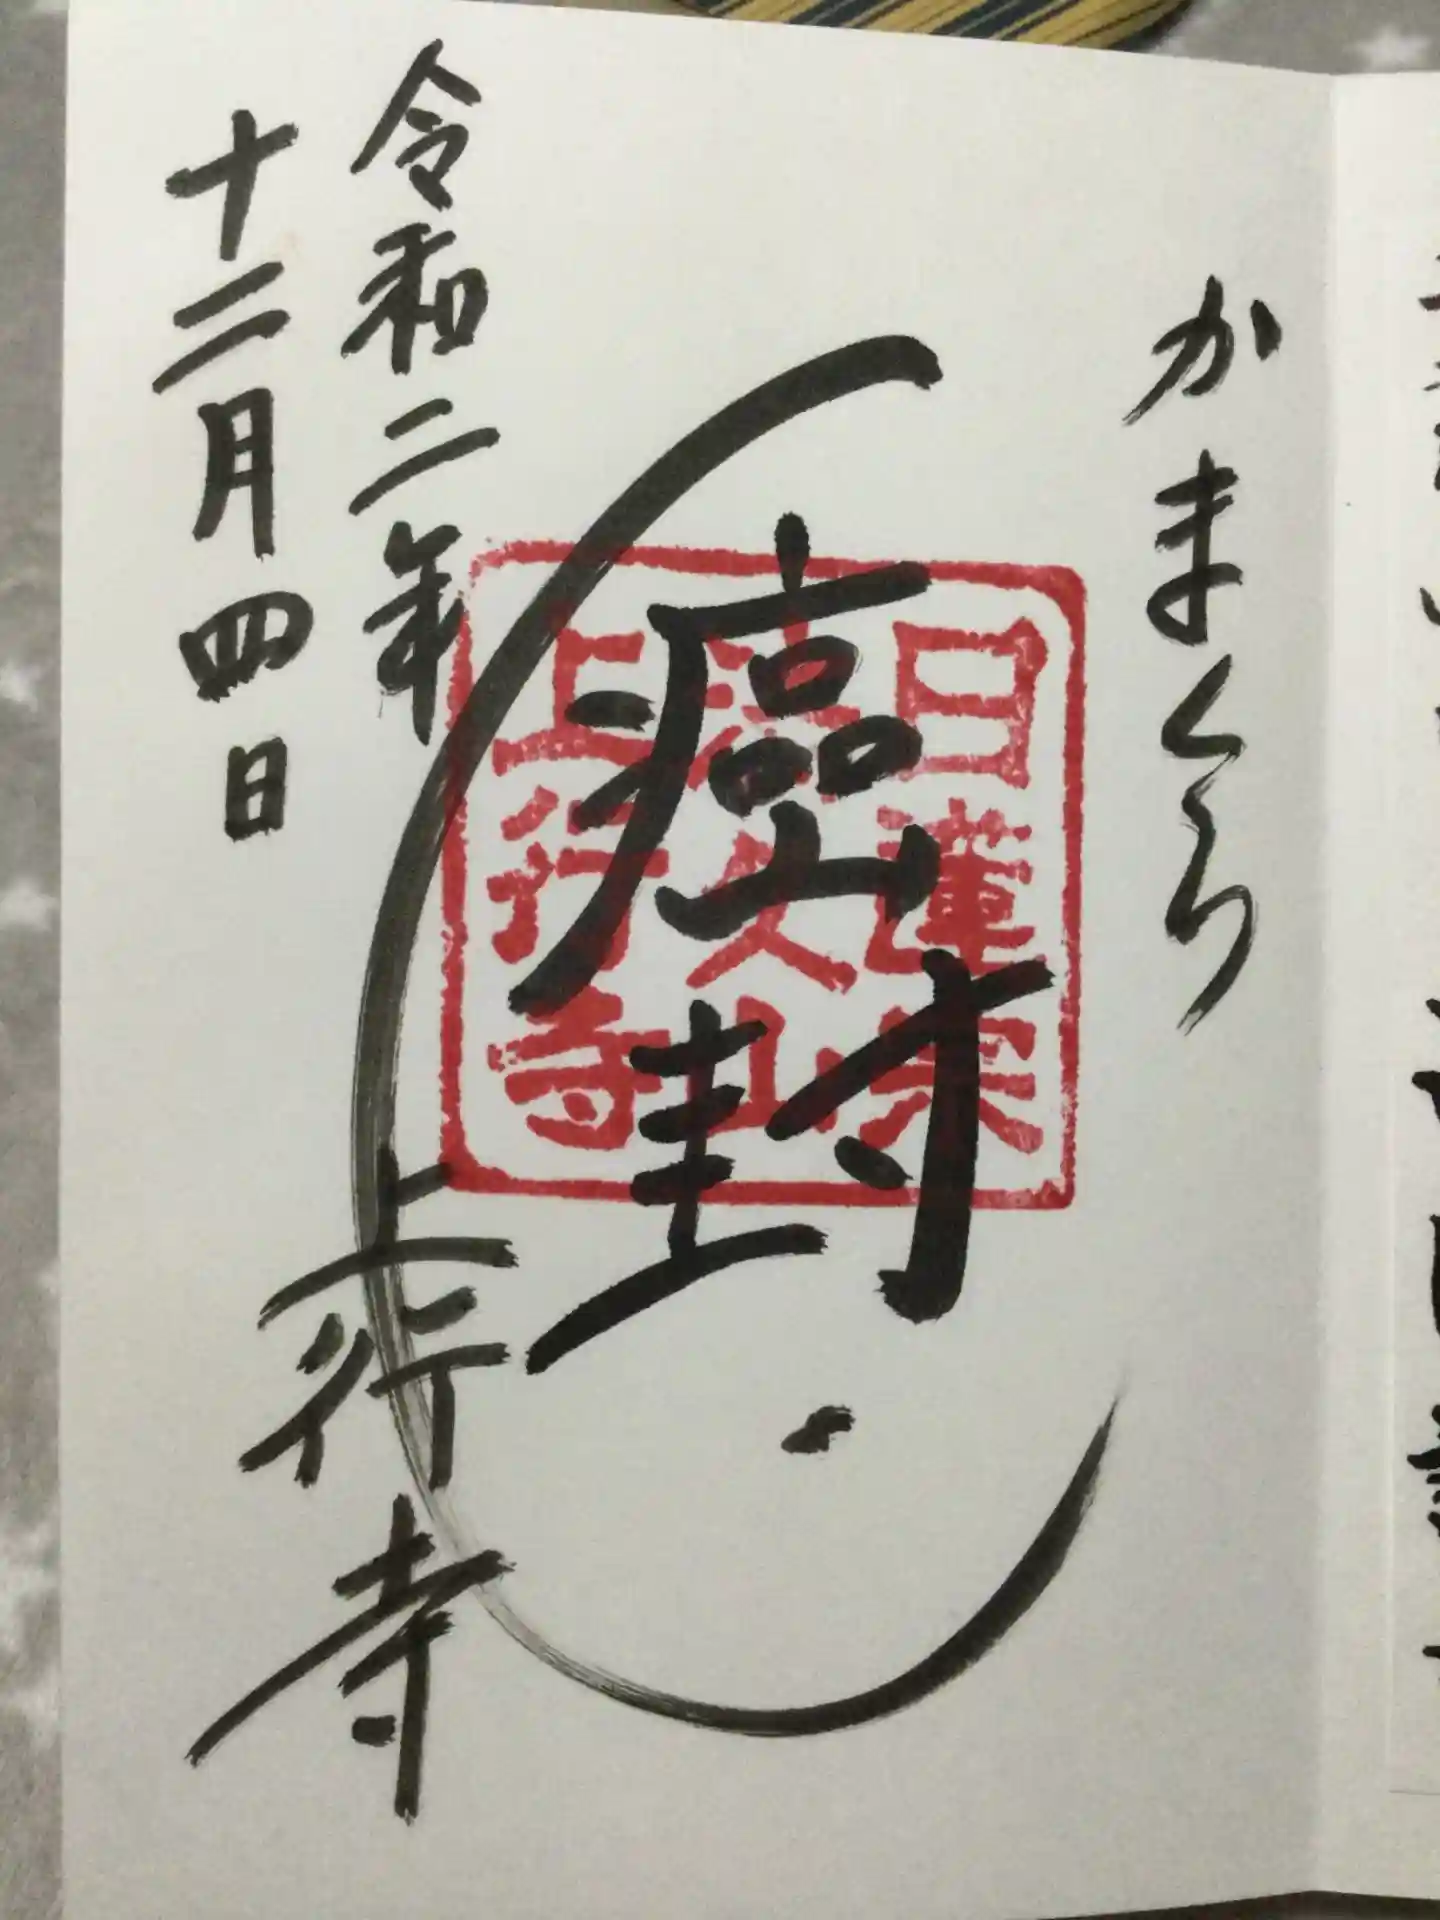 かまくら
癌封
日蓮宗
法久山
上行寺
令和二年
十二月四日
上行寺